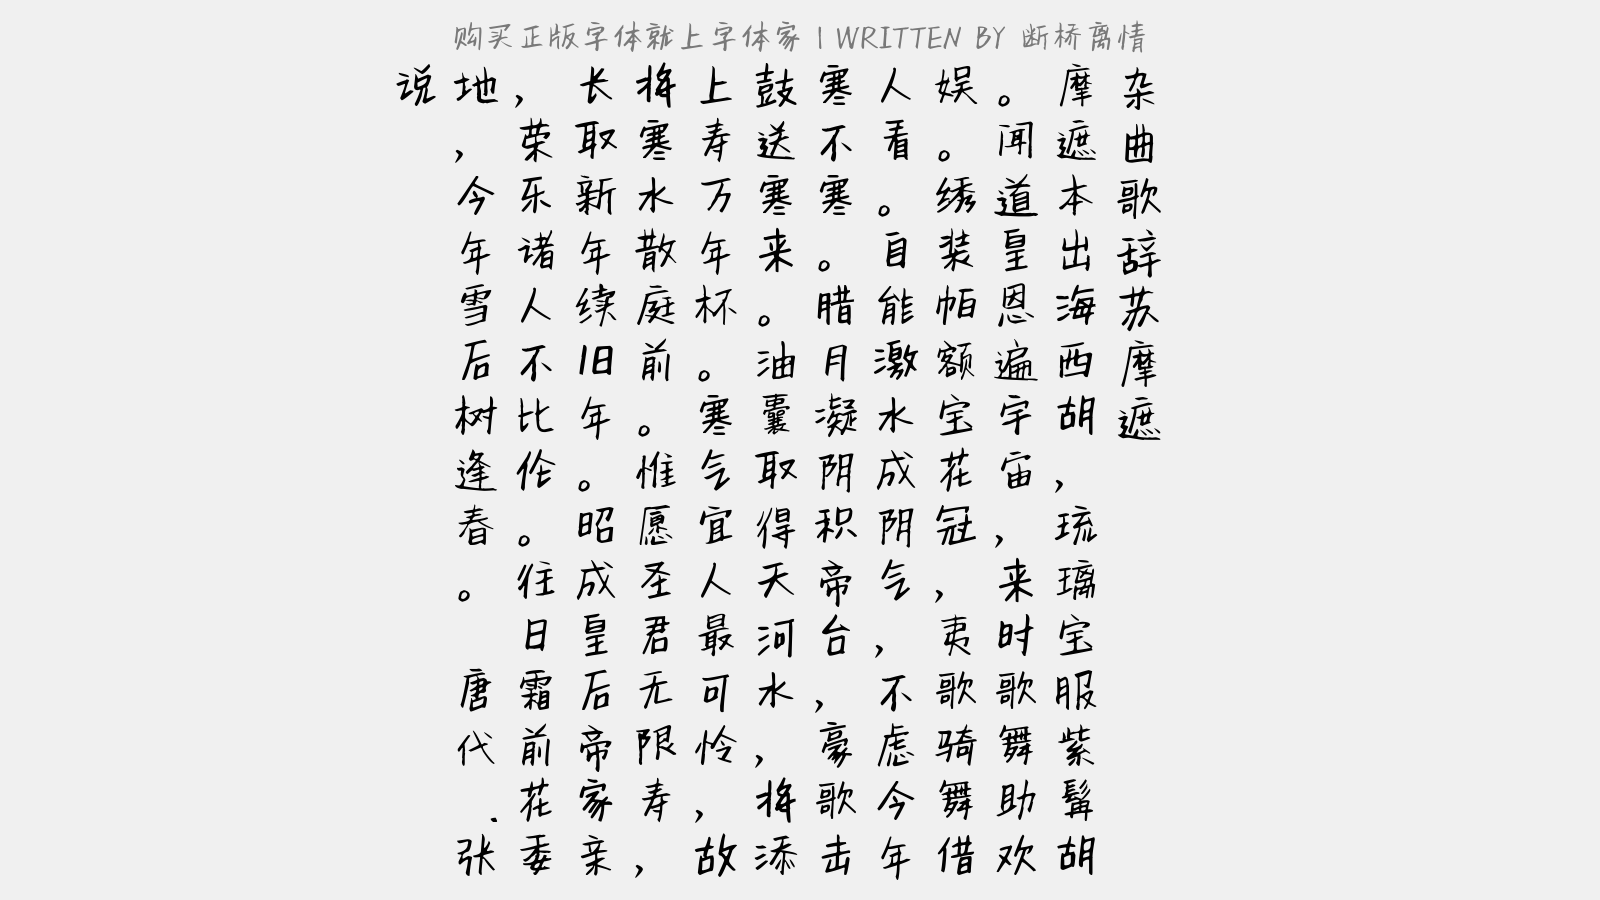 购买正版字体就上字体家 | WRITTEN BY 断桥离情
杂曲歌辞苏摩遮
摩遮本出海西胡，琉璃宝服紫髯胡
。闻道皇恩遍宇宙，来时歌舞助欢
娱。绣装帕额宝花冠，夷歌骑舞借
人看。自能激水成阴气，不虑今年
寒不寒。腊月凝阴积帝台，豪歌击
鼓送寒来。油囊取得天河水，将添
上寿万年杯。寒气宜人最可怜，故
将寒水散庭前。惟愿圣君无限寿，
长取新年续旧年。昭成皇后帝家亲
，荣乐诸人不比伦。往日霜前花委
地，今年雪后树逢春。 唐代.张
说